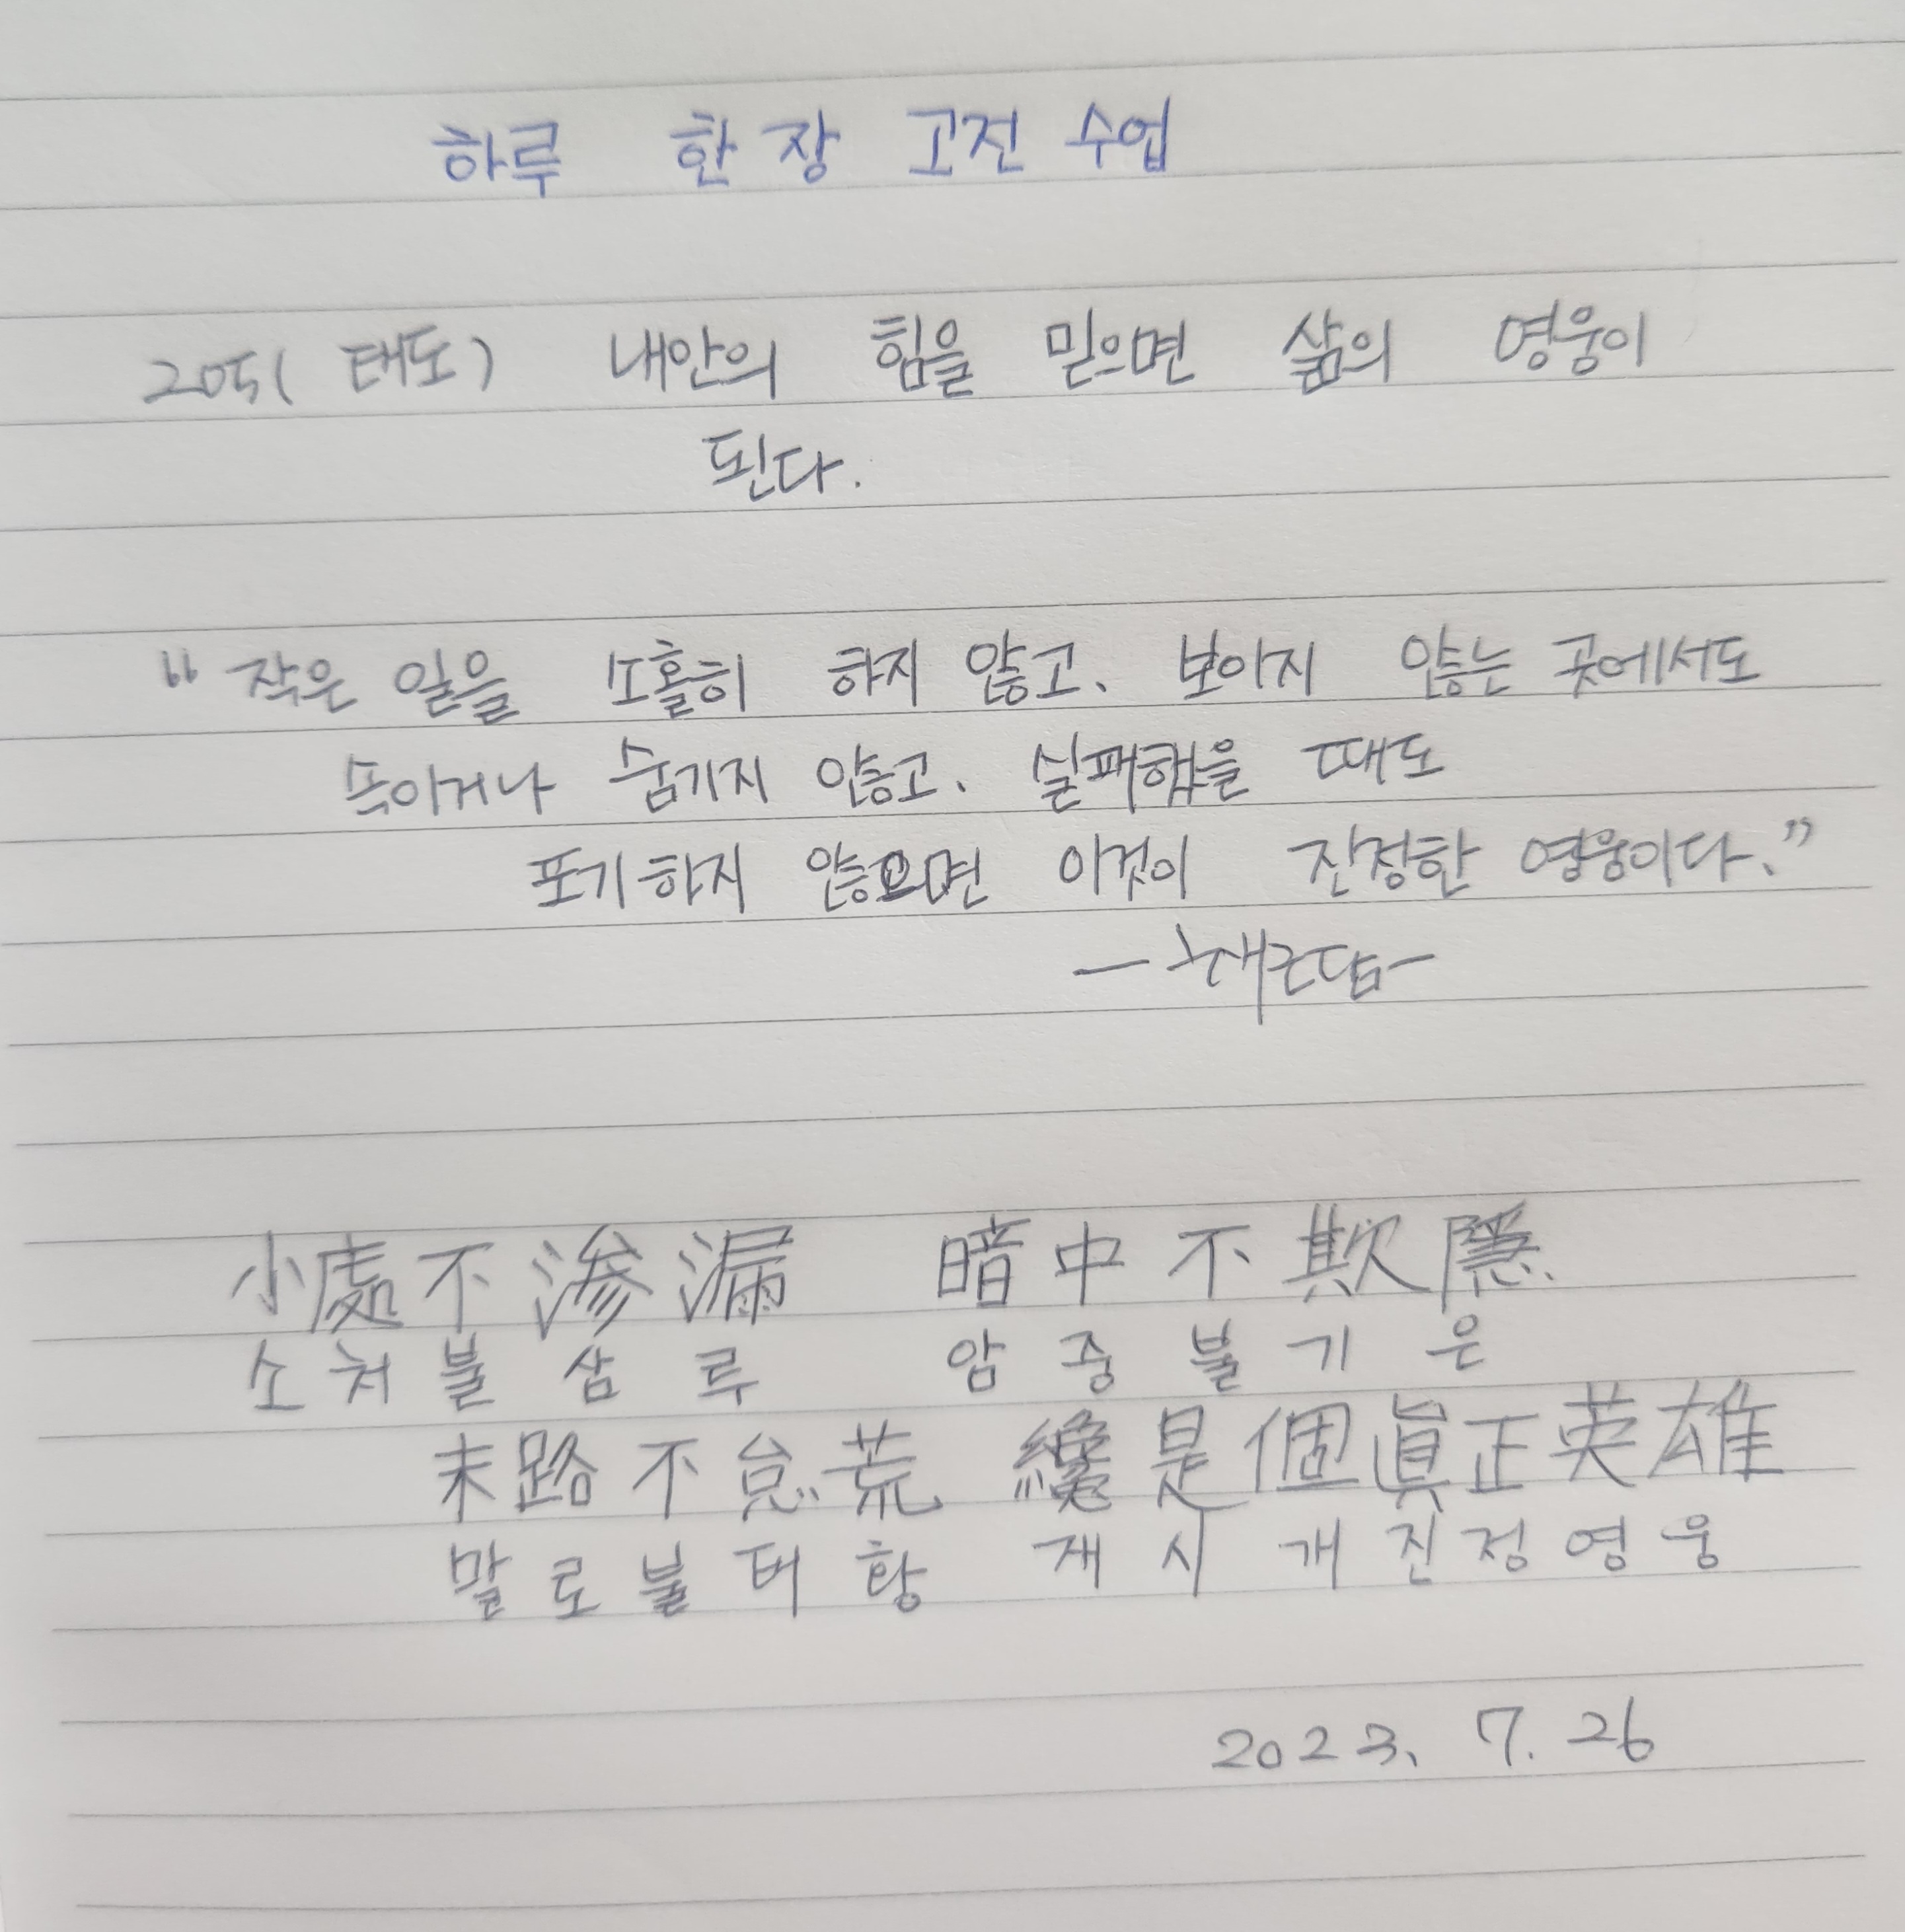 하루 한 장 고전 수업
205( 태도) 내안의 힘을 믿으면 삶의 영웅이
된다.
“작은 일을 소홀히 하지 않고、 보이지 않는 곳에서도
속이거나 숨기지 않고、 실패했을 때도
포기하지 않으면 이것이 진정한 영웅이다.”
- 채근담 -
小處不滲漏 暗中不欺隱
소처불삼루 암중불기은
末路不怠荒 纔是個眞正英雄
말로불태황 재시개진정영웅
2023. 7. 26